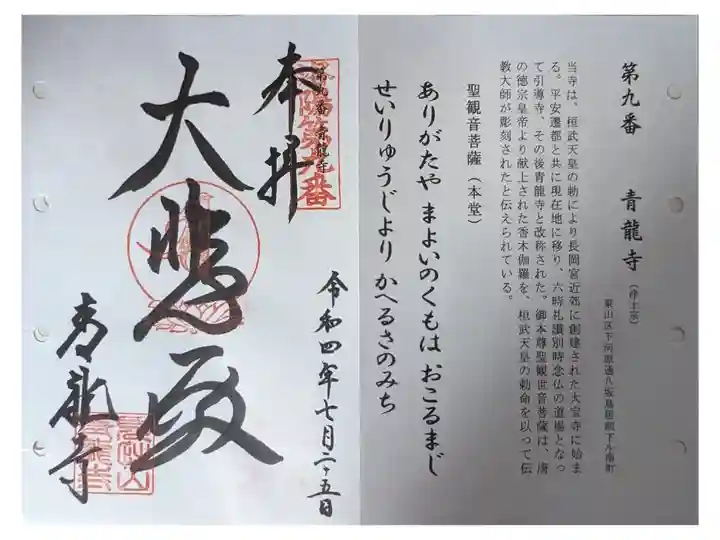 第九番　青龍寺（浄土宗）
東山区下河原通八坂鳥居前下ル南町
当寺は、桓武天皇の勅により長岡宮近郊に創建された大宝寺に始ま
る。平安遷都と共に現在地に移り、六時礼讃別時念仏の道場となっ
て引導寺、その後青龍寺と改称された。御本尊聖観世音菩薩は、唐
の徳宗皇帝より献上された香木伽羅を、桓武天皇の勅命を以って伝
教大師が彫刻されたと伝えられている。
聖観音菩薩（本堂）
ありがたや まよいのくもは おこるまじ
せいりゅうじより かへるさのみち
洛陽第九番
第九番 青龍寺
本拝
大悲殿
青龍寺
令和四年七月二十五日